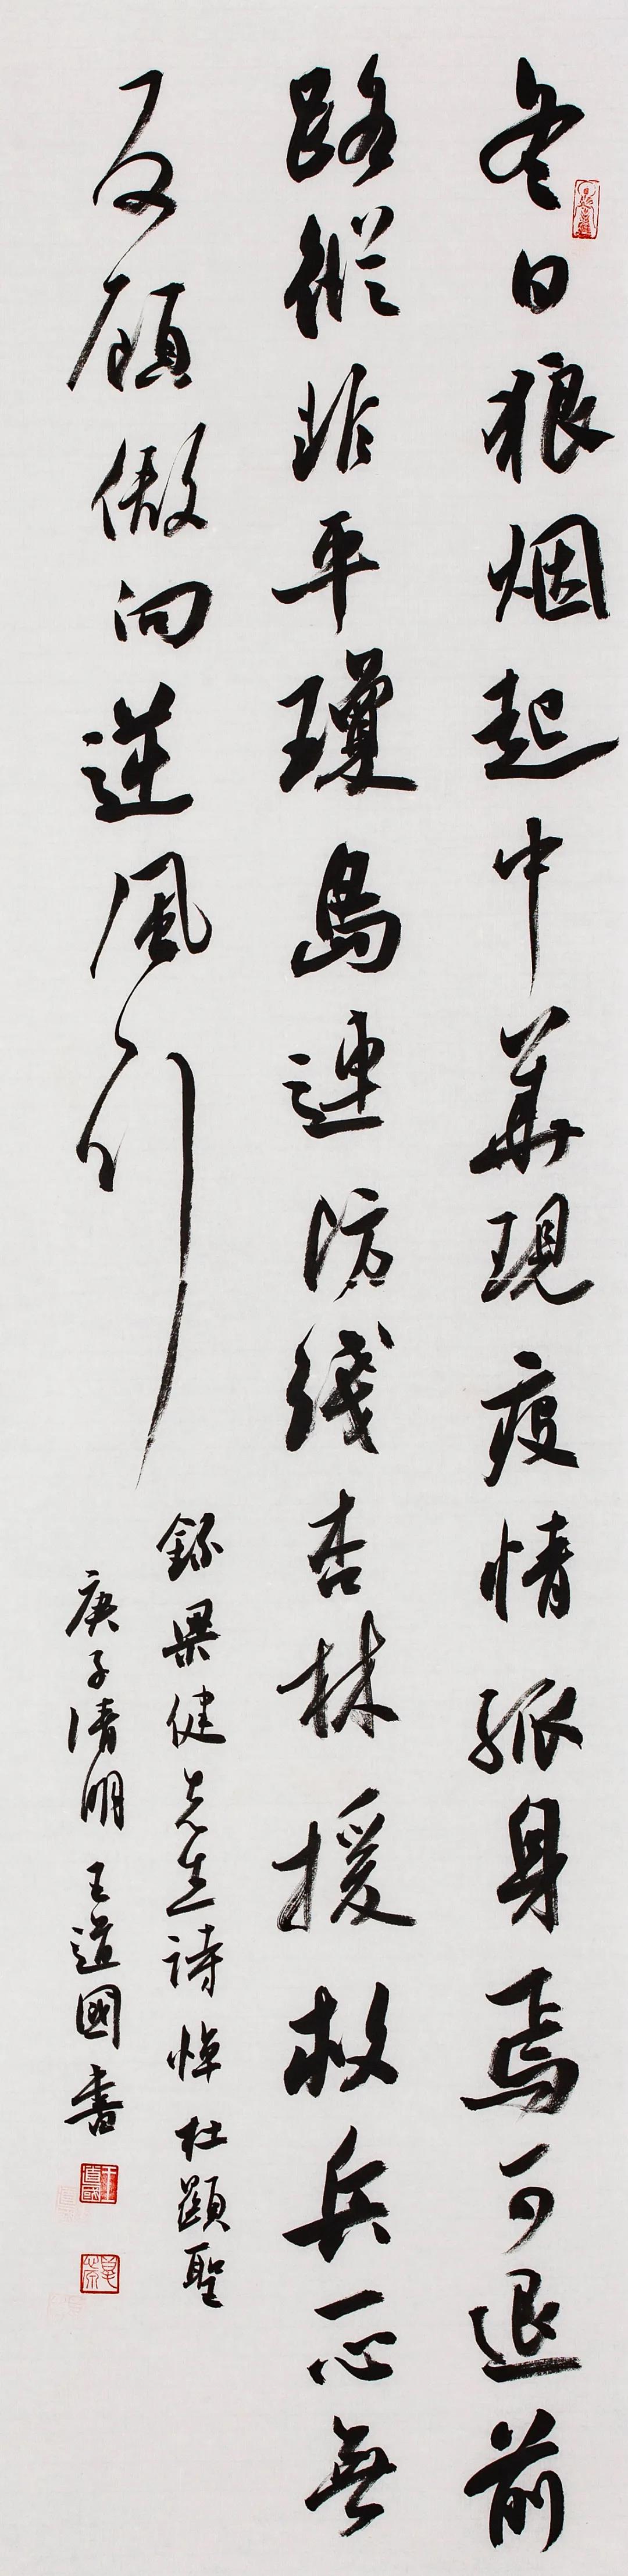 冬日狼烟起中華現疫情孤身焉可退前
路縱非平瓊島連防綫杏林援救兵一心無
反顧傲向逆風行
錄梁健先生詩悼杜顯聖
庚子清明王道國書